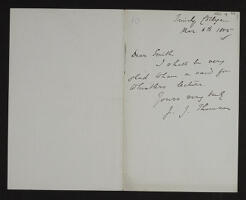 Trinity College
Mar. 6th 1885
Dear Smith
I shall be very
glad to have a card for
Whistler's lecture
Yours very truly
J. J. Thomson